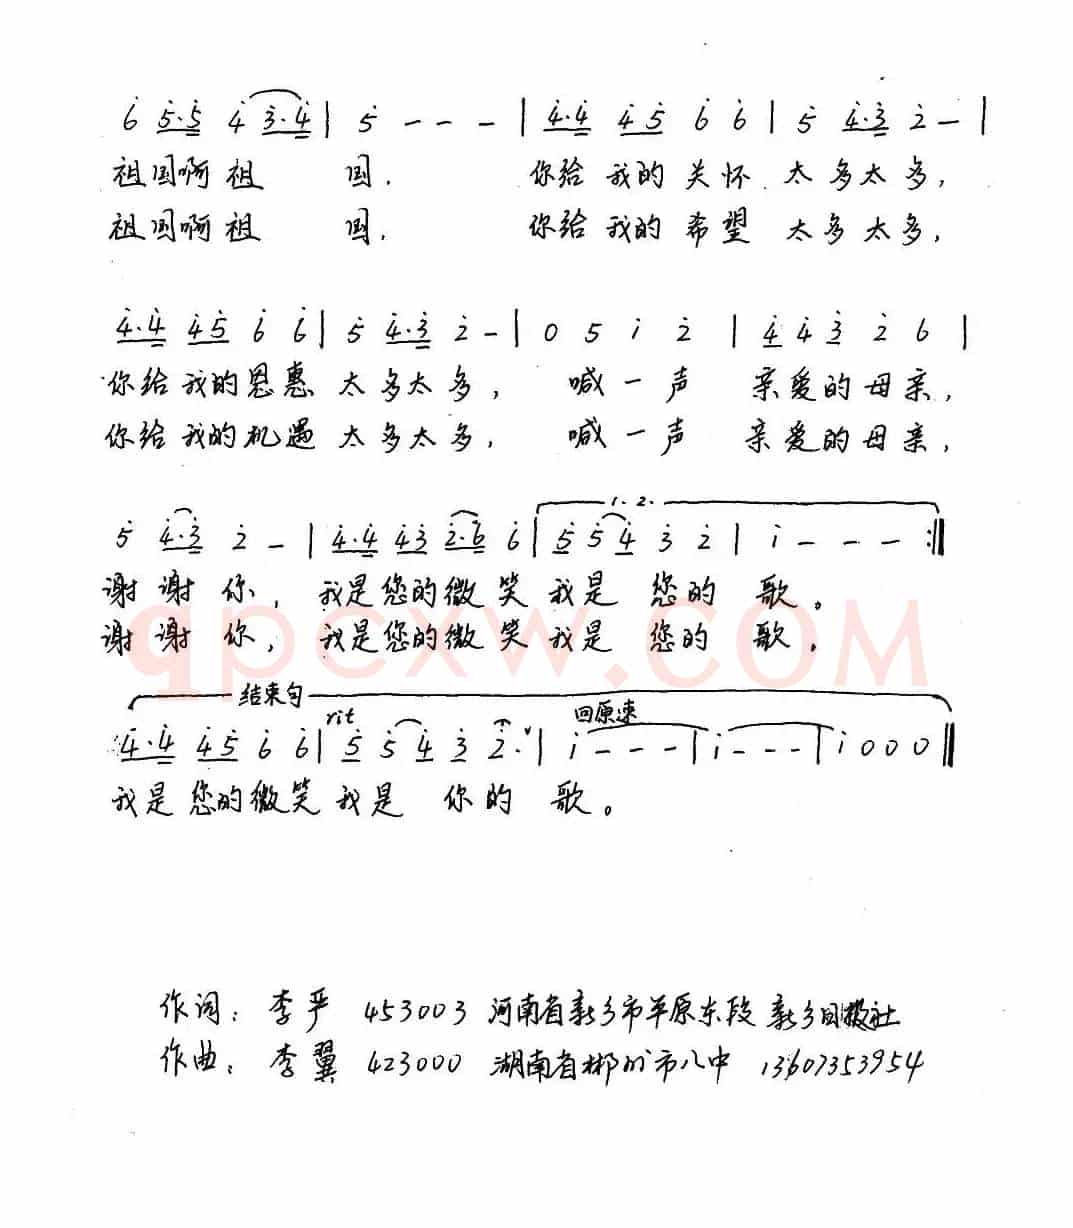 6 5·5 4 3·4 | 5 - - - | 4·4 4 5 6 6 | 5 4·3 2 - |
祖国啊祖 国. 你给 我的 关怀 太多太多,
祖国啊祖 国, 你给 我的 希望 太多太多,
4·4 4 5 6 6 | 5 4·3 2 - | 0 5 i 2 | 4 4 3 2 6 |
你给 我的恩惠 太多太多, 喊一声 亲爱的母亲,
你给 我的机遇 太多太多, 喊一声 亲爱的母亲,
1. 2.
5 4·3 2 - | 4·4 4 3 2·6 6 | 5 5 4 3 2 | i - - - :‖
谢谢你, 我是您的微笑 我是 您的 歌。
谢谢你, 我是您的微笑 我是 您的 歌.
qpcxw.com
结束句
rit 回原速
4·4 4 5 6 6 | 5 5 4 3 2· | i - - - | i - - - | i 0 0 0 ‖
我是 您的微笑 我是 你的 歌。
作词: 李严 453003 河南省新乡市平原东段 新乡日报社
作曲: 李翼 423000 湖南省郴州市八中 13607353954